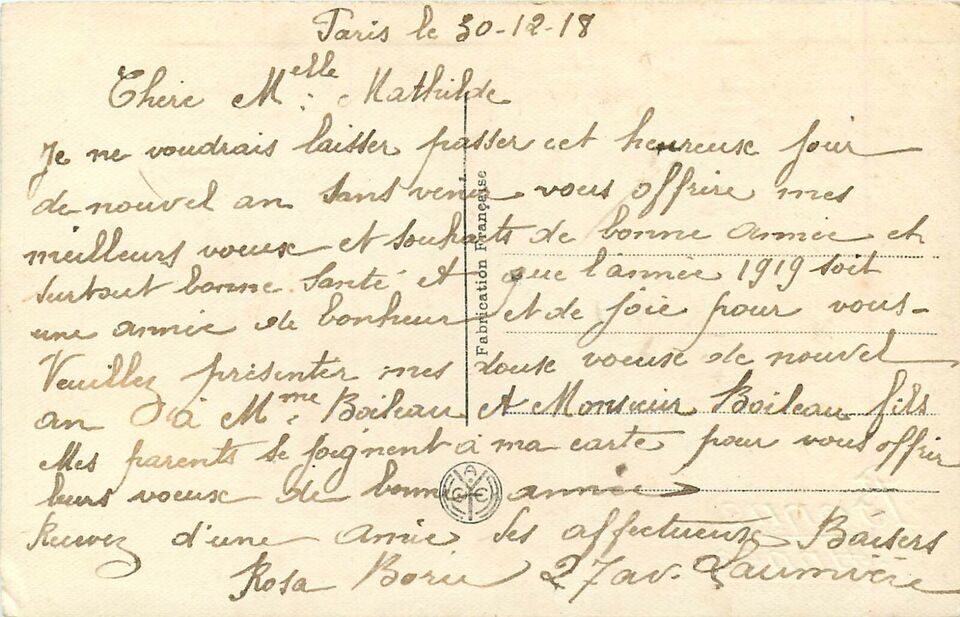 Paris le 30-12-18
Chere Melle Mathilde
Je ne voudrais laisser passer cet heureuse jour
de nouvel an sans venir vous offrire mes
meilleurs voeux et souhaits de bonne année et
surtout bonne santé et que l'année 1919 soit
une année de bonheur et de joie pour vous-
Veuillez présenter mes douse voeuse de nouvel
an à Mme Boileau et Monsieur Boileau fils
Mes parents se joignent à ma carte pour vous offrir
leurs voeux de bonne année
Recevez d'une amie ses affectueux Baisers
Rosa 27 av. Laumière
Fabrication Française